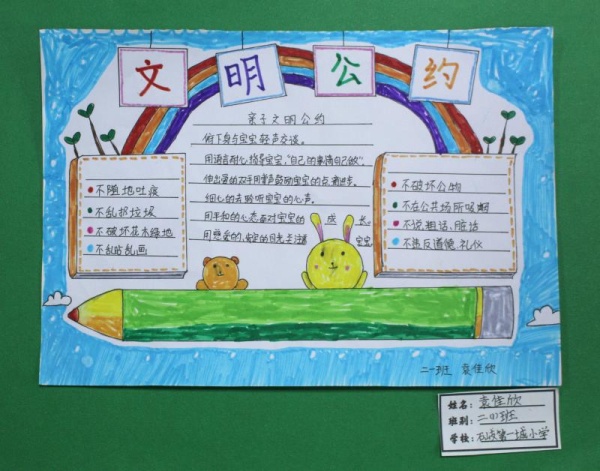 文明公约
亲子文明公约
俯下身与宝宝轻声交谈。
用语言耐心指导宝宝,"自己的事情自己做"。
伸出温的双手用掌声鼓励宝宝的点滴进步。
细心的去聆听宝宝的心声。
用平和的心态面对宝宝的成长
用慈爱的,肯定的目光去注意宝宝
不随地吐痰
不乱扔垃圾
不破坏花木绿地
不乱贴乱画
不破坏公物
不在公共场所吸烟
不说粗话,脏话
不违反道德,礼仪
二一班 袁佳欣
姓名:袁佳欣
班别:二(1)班
学校:第一城小学